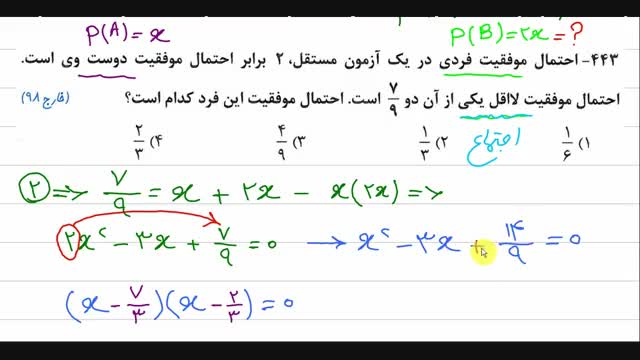 P(A) = x P(B) = ۲x = ?
۴۴۳- احتمال موفقیت فردی در یک آزمون مستقل، ۲ برابر احتمال موفقیت دوست وی است.
احتمال موفقیت لااقل یکی از آن دو ۷/۹ است. احتمال موفقیت این فرد کدام است؟ (خارج ۹۸)
۱) ۱/۶ اجتماع ۲) ۱/۳ ۳) ۴/۹ ۴) ۲/۳
۲ => ۷/۹ = x + ۲x - x(۲x) =>
۲x² - ۳x + ۷/۹ = ۰ → x² - ۳x + ۱۴/۹ = ۰
(x - ۷/۳)(x - ۲/۳) = ۰